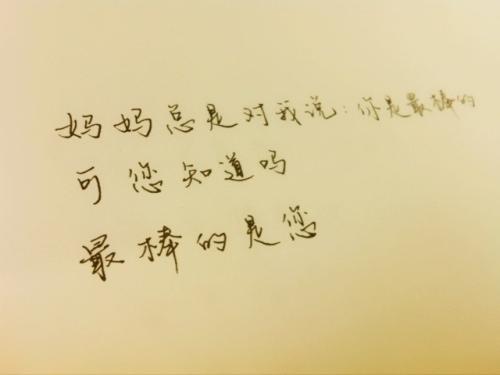 妈妈总是对我说:你是最棒的
可您知道吗
最棒的是您